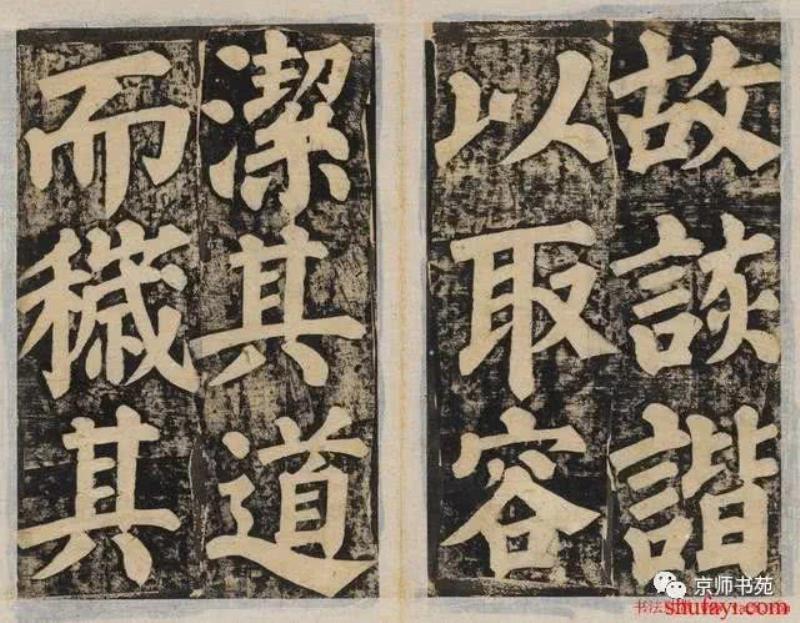 故詼諧
以取容
潔其道
而穢其
京师书苑
shufayi.com